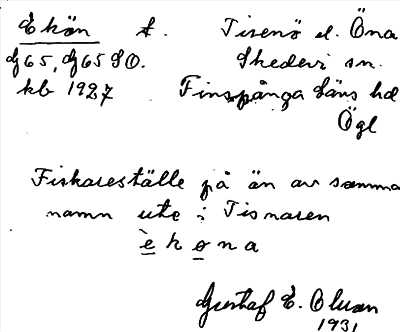 Ekön f. Tisenö el. Öna
dj 65, dj 65 SO. Skedevi sn.
kb 1927 Finspånga läns hd
Ögl
Fiskareställe på än av samma
namn ute i Tisnaren
èkona
Gustaf E. Olsson
1931